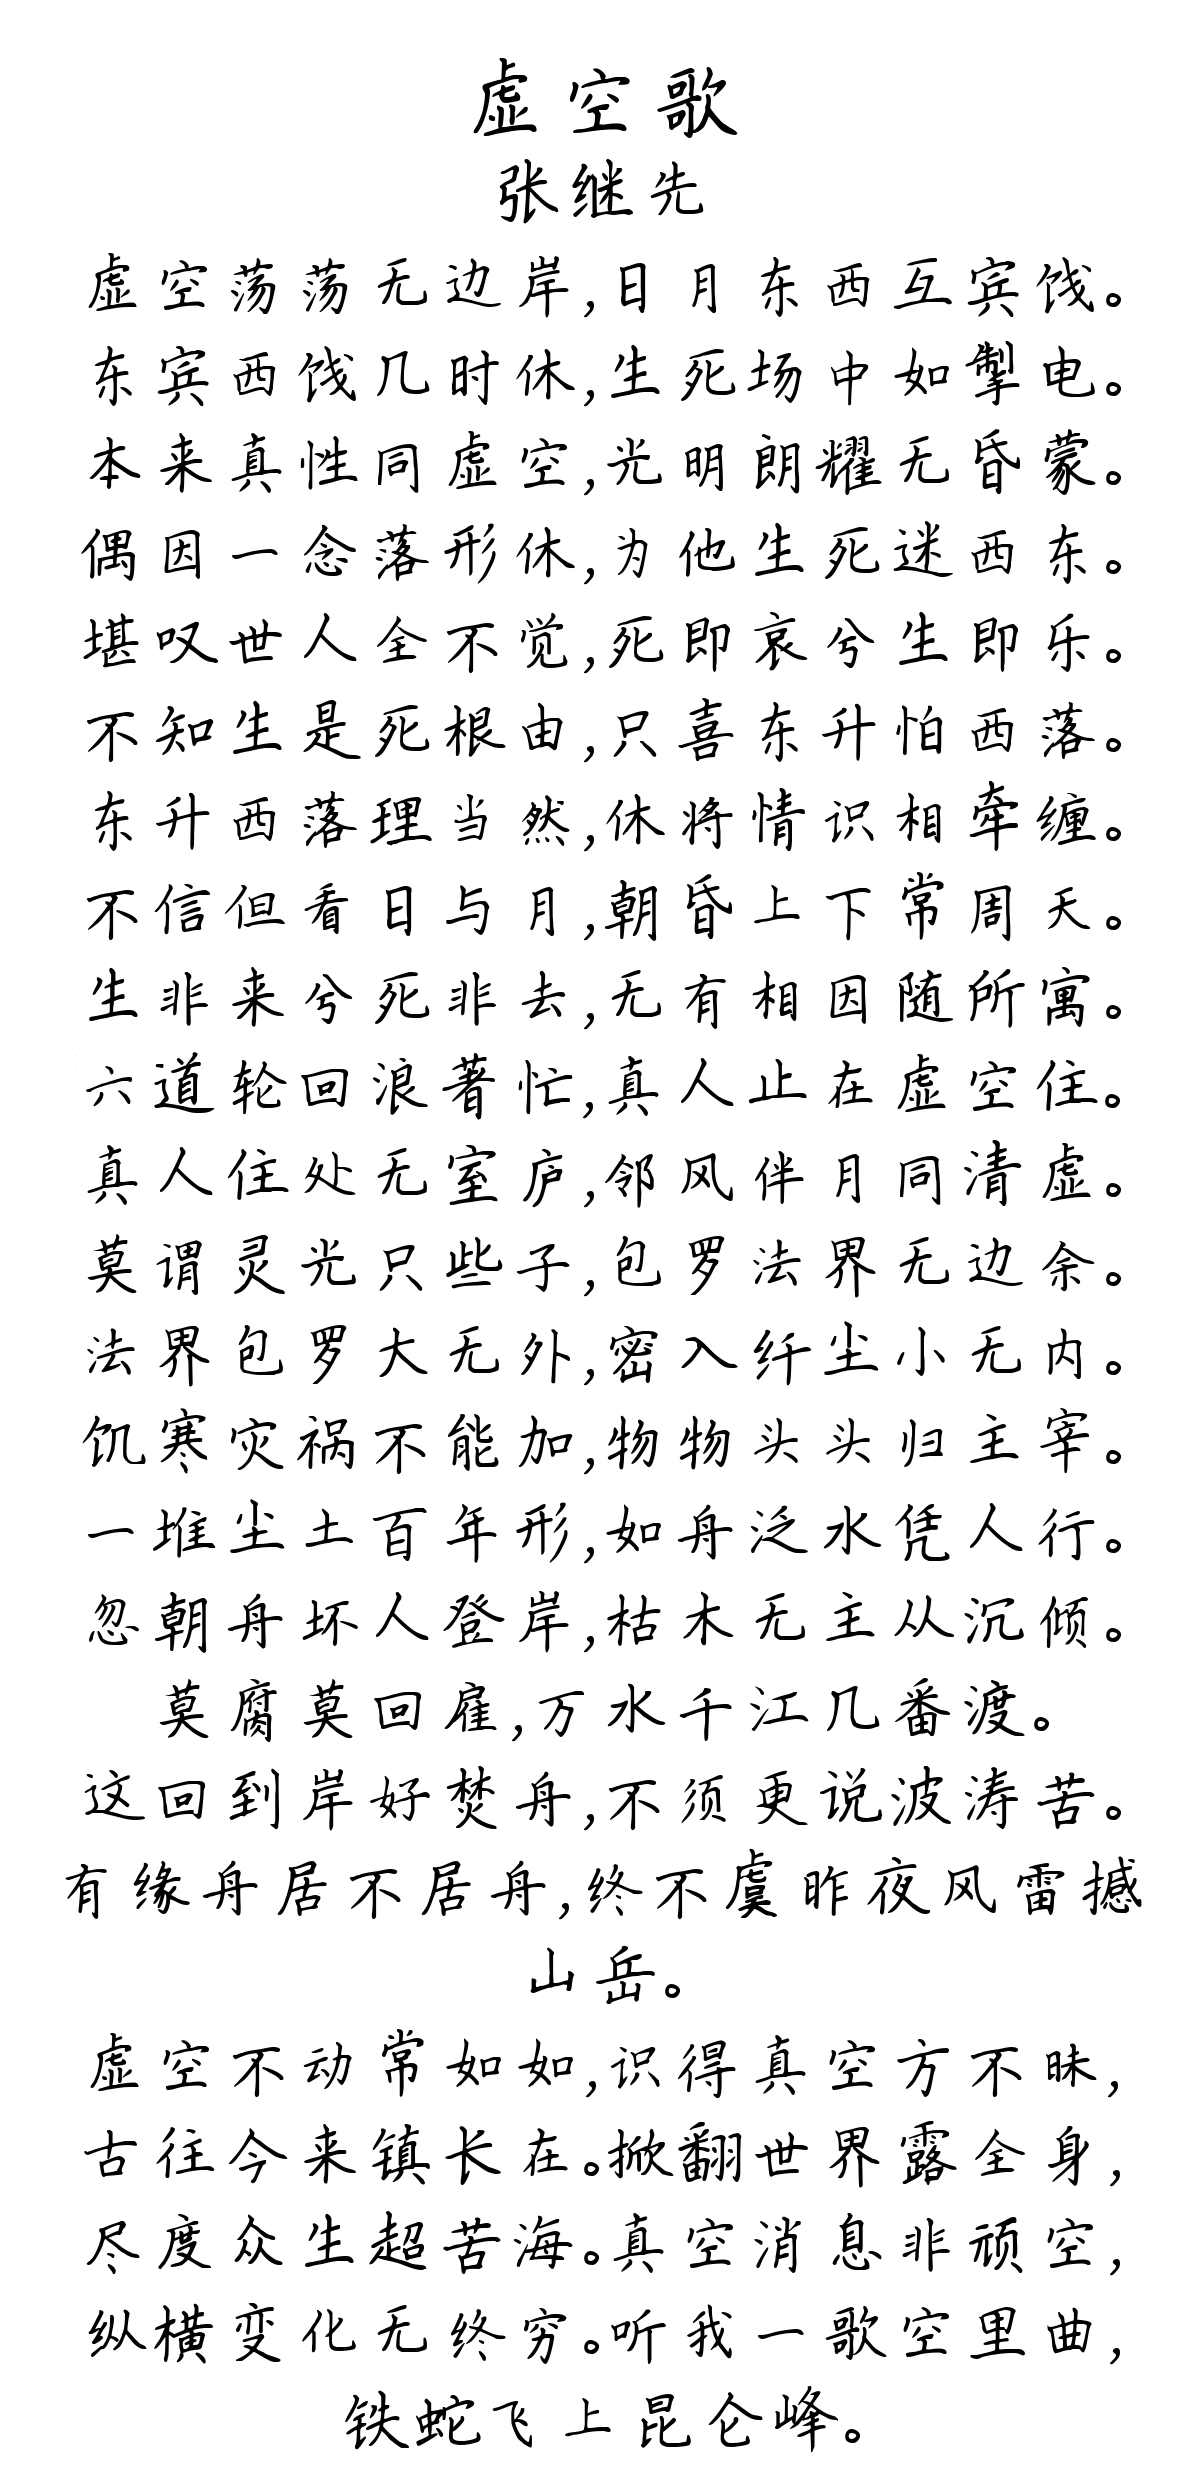 虚空歌
张继先
虚空荡荡无边岸,日月东西互宾饯。
东宾西饯几时休,生死场中如掣电。
本来真性同虚空,光明朗耀无昏蒙。
偶因一念落形休,为他生死迷西东。
堪叹世人全不觉,死即哀兮生即乐。
不知生是死根由,只喜东升怕西落。
东升西落理当然,休将情识相牵缠。
不信但看日与月,朝昏上下常周天。
生非来兮死非去,无有相因随所寓。
六道轮回浪著忙,真人止在虚空住。
真人住处无室庐,邻风伴月同清虚。
莫谓灵光只些子,包罗法界无边余。
法界包罗大无外,密入纤尘小无内。
饥寒灾祸不能加,物物头头归主宰。
一堆尘土百年形,如舟泛水凭人行。
忽朝舟坏人登岸,枯木无主从沉倾。
莫腐莫回雇,万水千江几番渡。
这回到岸好焚舟,不须更说波涛苦。
有缘舟居不居舟,终不虞昨夜风雷撼
山岳。
虚空不动常如如,识得真空方不昧,
古往今来镇长在。掀翻世界露全身,
尽度众生超苦海。真空消息非顽空,
纵横变化无终穷。听我一歌空里曲,
铁蛇飞上昆仑峰。